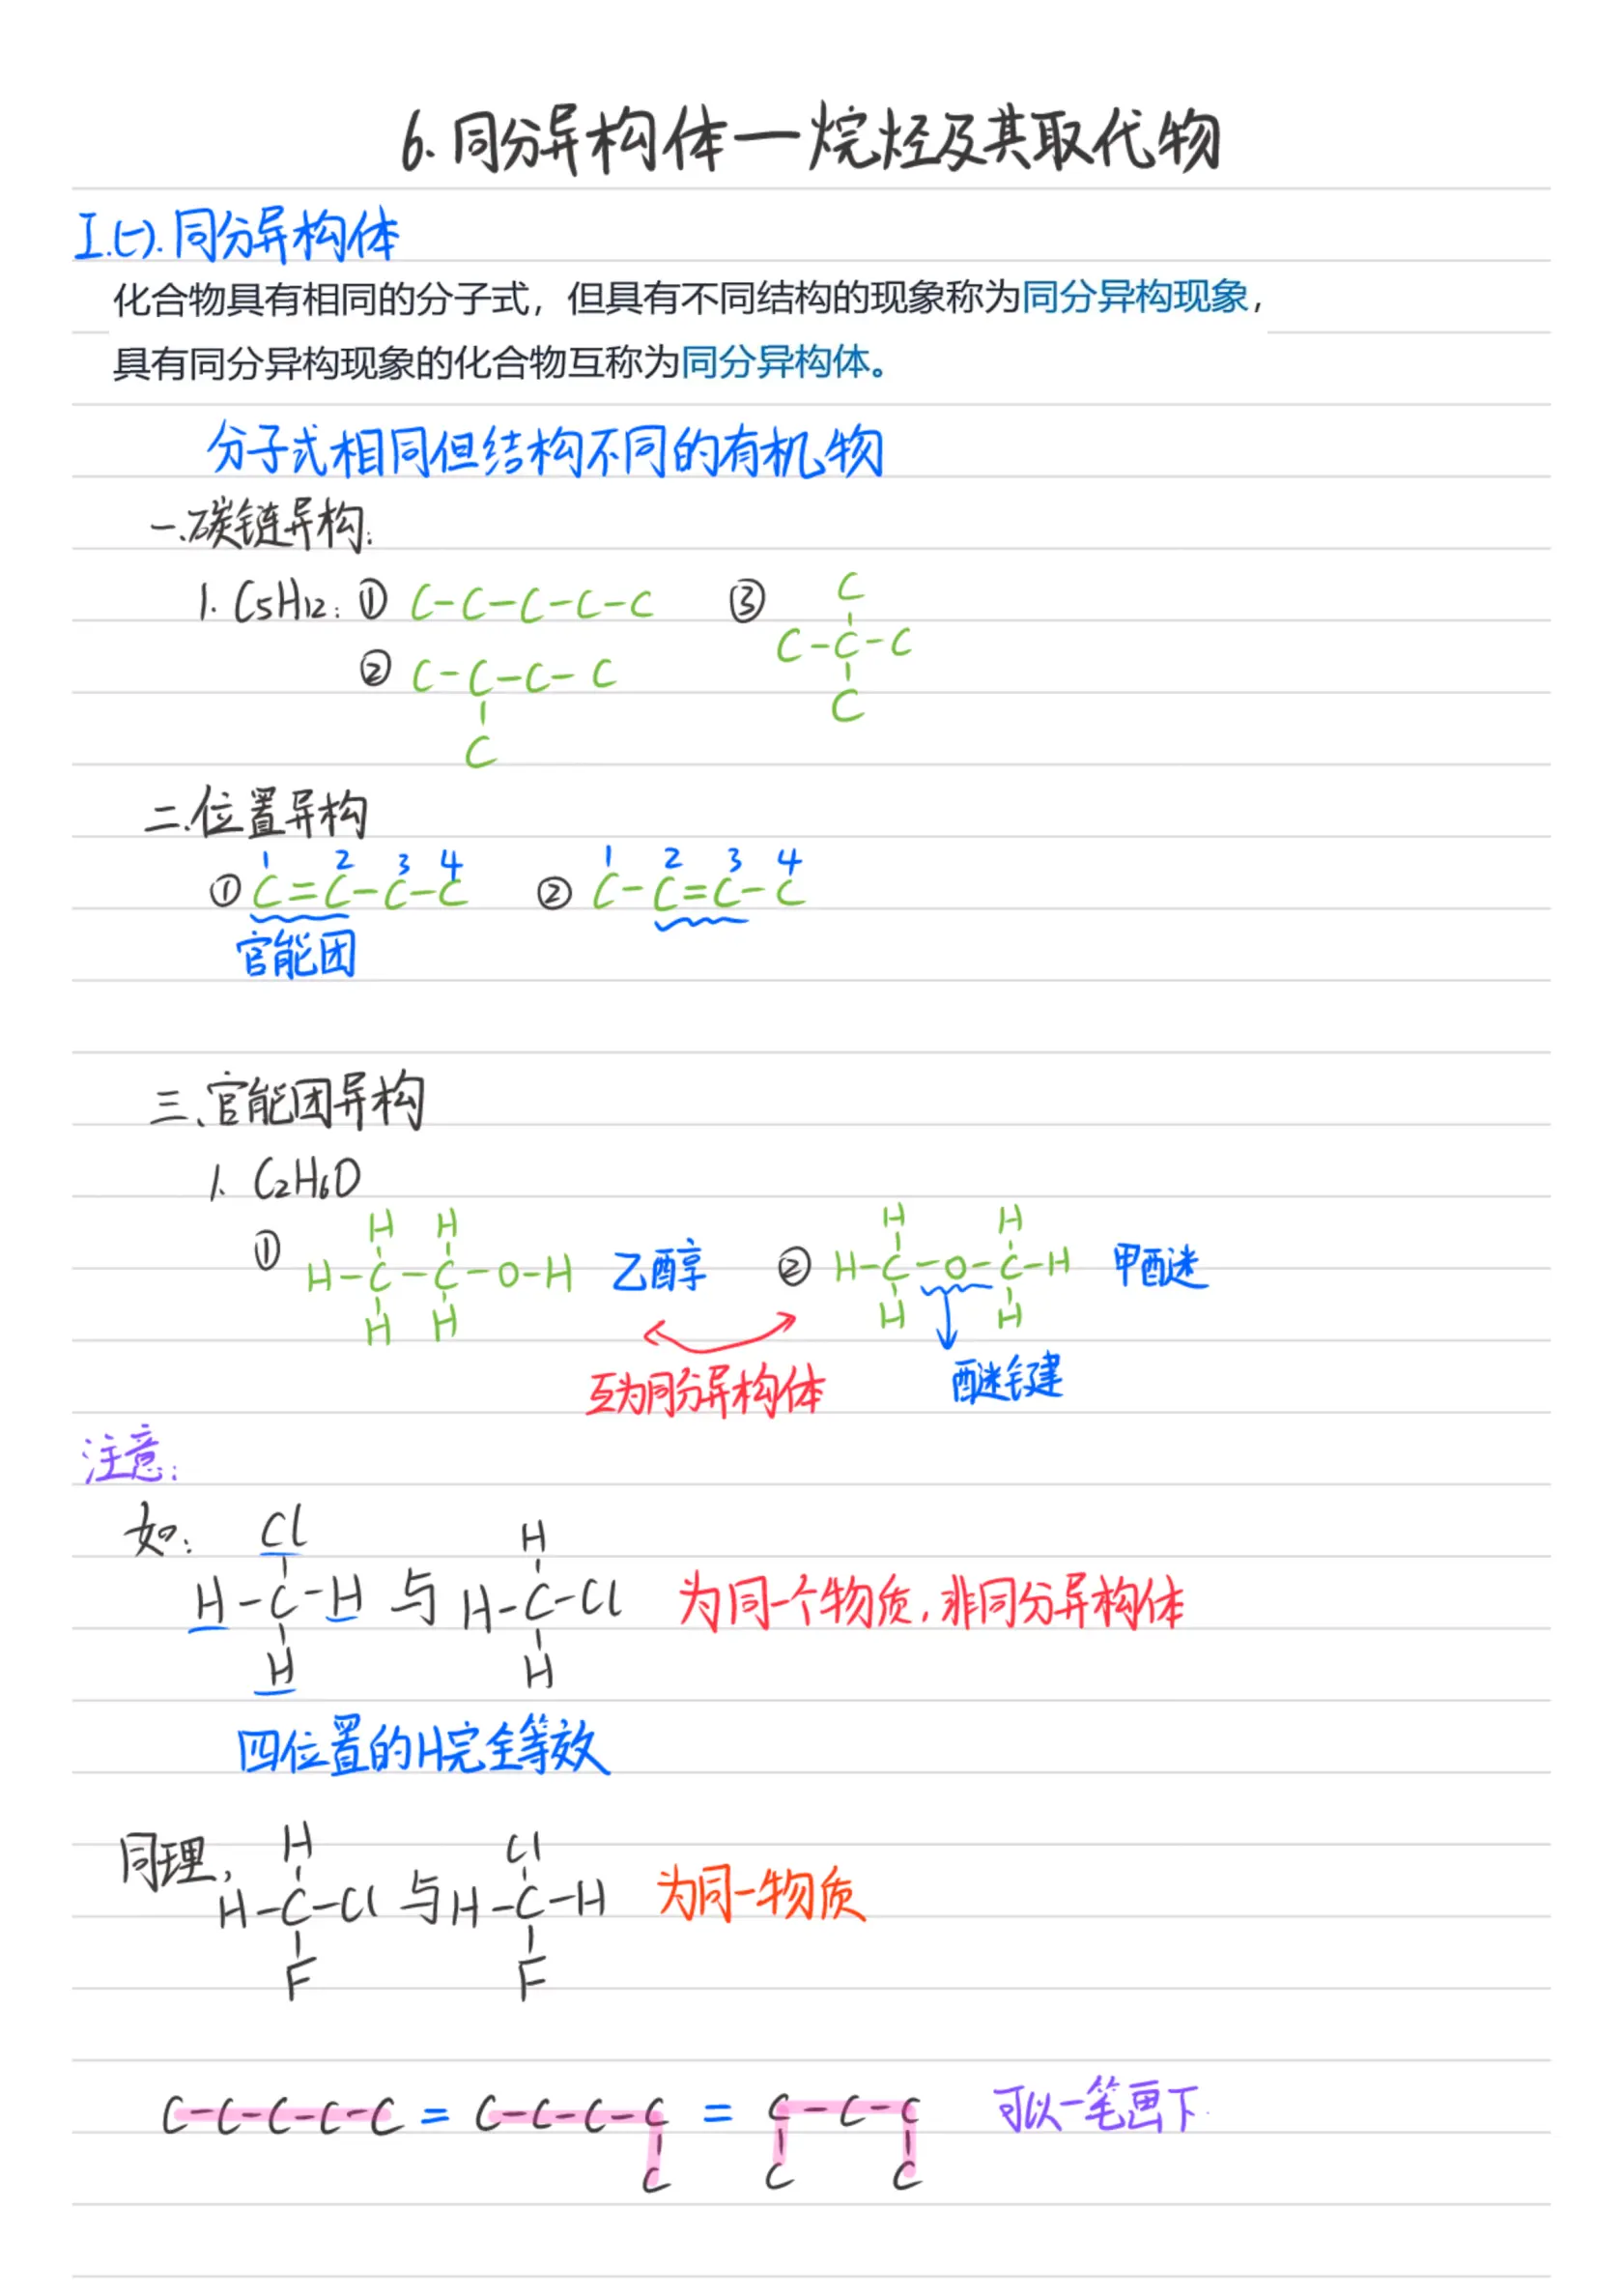 6.同分异构体—烷烃及其取代物
I.(一).同分异构体
化合物具有相同的分子式，但具有不同结构的现象称为同分异构现象，
具有同分异构现象的化合物互称为同分异构体。
分子式相同但结构不同的有机物
一.碳链异构：
1. C5H12：① C-C-C-C-C ③ C
C-C-C
② C-C-C-C
C
C
二.位置异构
1 2 3 4 1 2 3 4
① C=C-C-C ② C-C=C-C
官能团
三、官能团异构
1. C2H6O
H H H H
① H-C-C-O-H 乙醇 ② H-C-O-C-H 甲醚
H H H H
互为同分异构体 醚键
注意：
如： Cl H
H-C-H 与 H-C-Cl 为同一个物质，非同分异构体
H H
四位置的H完全等效
同理， H Cl
H-C-Cl 与 H-C-H 为同一物质
F F
C-C-C-C-C = C-C-C-C = C-C-C 可以一笔画下.
C C C